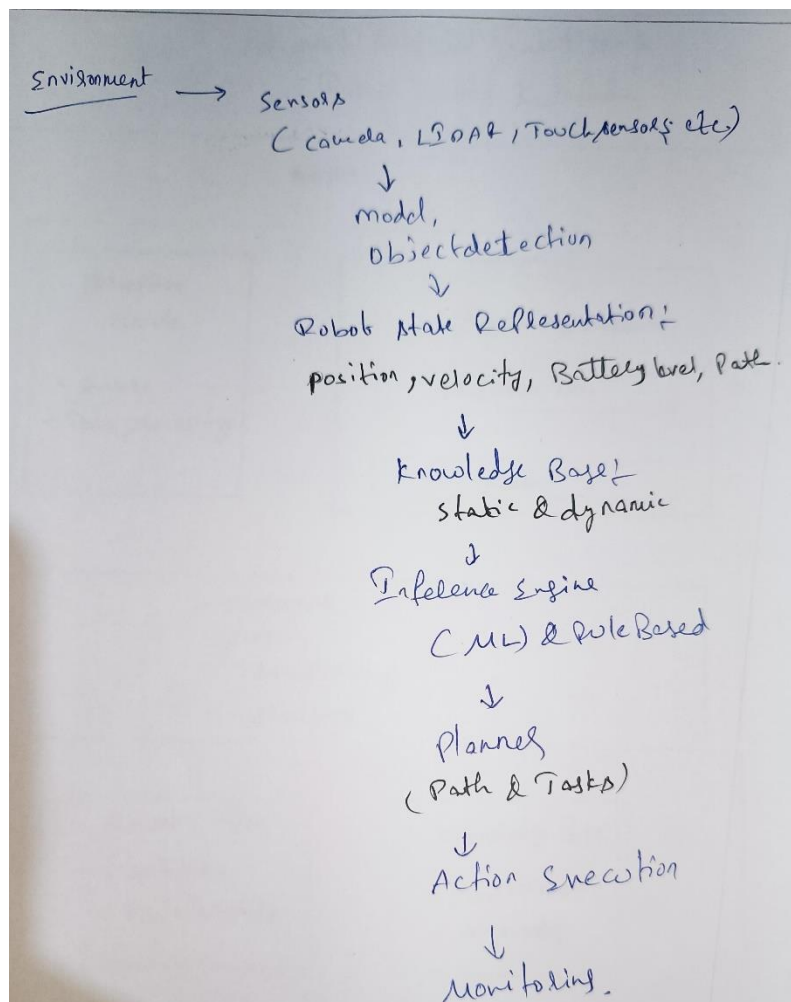 Environment → Sensors
(Camera, LIDAR, Touch sensors etc.)
↓
Model,
Object detection
↓
Robot state Representation:-
position, velocity, Battery level, Path.
↓
Knowledge Base:-
static & dynamic
↓
Inference Engine
(ML) & Rule Based
↓
Planner
(Path & Tasks)
↓
Action Execution
↓
Monitoring.